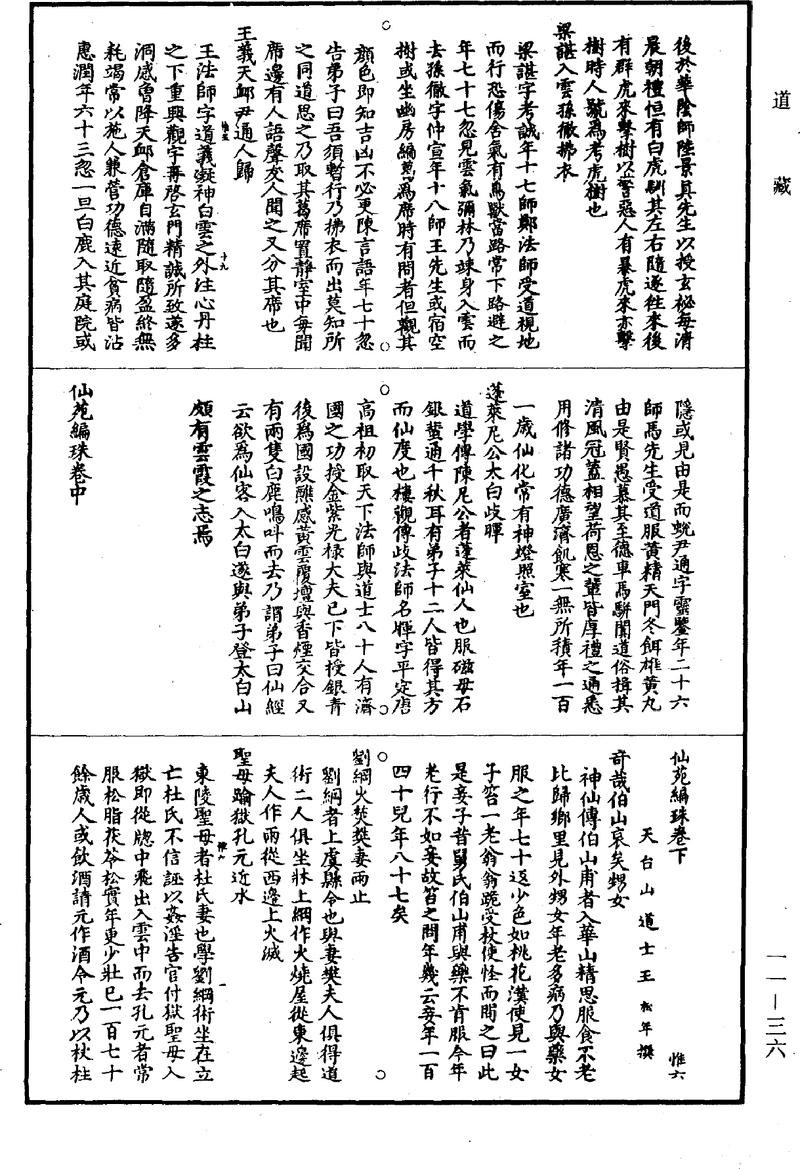 道藏
後於華陰師陸景真先生以授玄祕每清
晨朝禮恒有白虎馴其左右隨遂往來後
有群虎來擊樹以警惡人有暴虎來亦擊
樹時人號為考虎樹也
梁諶入雲孫徹拂衣
梁諶字考誠年十七師鄭法師受道視地
而行恐傷含氣有鳥獸當路常下路避之
年七十七忽見雲氣彌林乃竦身入雲而
去孫徹字仲宣年十八師王先生或宿空
樹或坐幽房編蒿為席時有問者但觀其
顏色即知吉凶不必更陳言語年七十忽
告弟子曰吾須暫行乃拂衣而出莫知所
之同道思之乃取其葛席置靜室中每聞
席邊有人語聲友人聞之又分其席也
王義天邮尹通人歸
王法師字道義凝神白雲之外注心丹柱
之下重興觀宇再啓玄門精誠所致遂多
洞感曾降天邮倉庫自滿隨取隨盈終無
耗竭常以施人兼營功德遠近貧病皆沾
惠潤年六十三忽一旦白鹿入其庭院或
隱或見由是而蛻尹通字靈鑒年二十六
師馬先生受道服黃精天門冬餌雄黃丸
由是賢愚慕其至德車馬駢闐道俗揖其
清風冠蓋相望荷恩之輩皆厚禮之通悉
用修諸功德廣濟飢寒一無所積年一百
一歲仙化常有神燈照室也
蓬萊尼公太白歧暉
道學傳陳尼公者蓬萊仙人也服磁母石
銀蟹通千秋耳有弟子十二人皆得其方
而仙度也樓觀傳歧法師名暉字平定唐
高祖初取天下法師與道士八十人有濟
國之功授金紫光祿大夫已下皆授銀青
後為國設醮感黃雲覆壇與香煙交合又
有兩隻白鹿鳴叫而去乃謂弟子曰仙經
云欲為仙客入太白遂與弟子登太白山
頗有雲霞之志焉
仙苑編珠卷中
仙苑編珠卷下 惟六
天台山道士王松年撰
奇哉伯山哀矣甥女
神仙傳伯山甫者入華山精思服食不老
比歸鄉里見外甥女年老多病乃與藥女
服之年七十返少色如桃花漢使見一女
子笞一老翁翁跪受杖使怪而問之曰此
是妾子昔舅氏伯山甫與藥不肯服今年
老行不如妾故笞之問年幾云妾年一百
四十兒年八十七矣
劉綱火焚樊妻雨止
劉綱者上虞縣令也與妻樊夫人俱得道
術二人俱坐牀上綱作火燒屋從東邊起
夫人作雨從西邊上火滅
聖母踰獄孔元近水
東陵聖母者杜氏妻也學劉綱術坐在立
亡杜氏不信誣以姦淫告官付獄聖母入
獄即從牕中飛出入雲中而去孔元者常
服松脂茯苓松實年更少壯已一百七十
餘歲人或飲酒請元作酒令元乃以杖柱
一一—三六